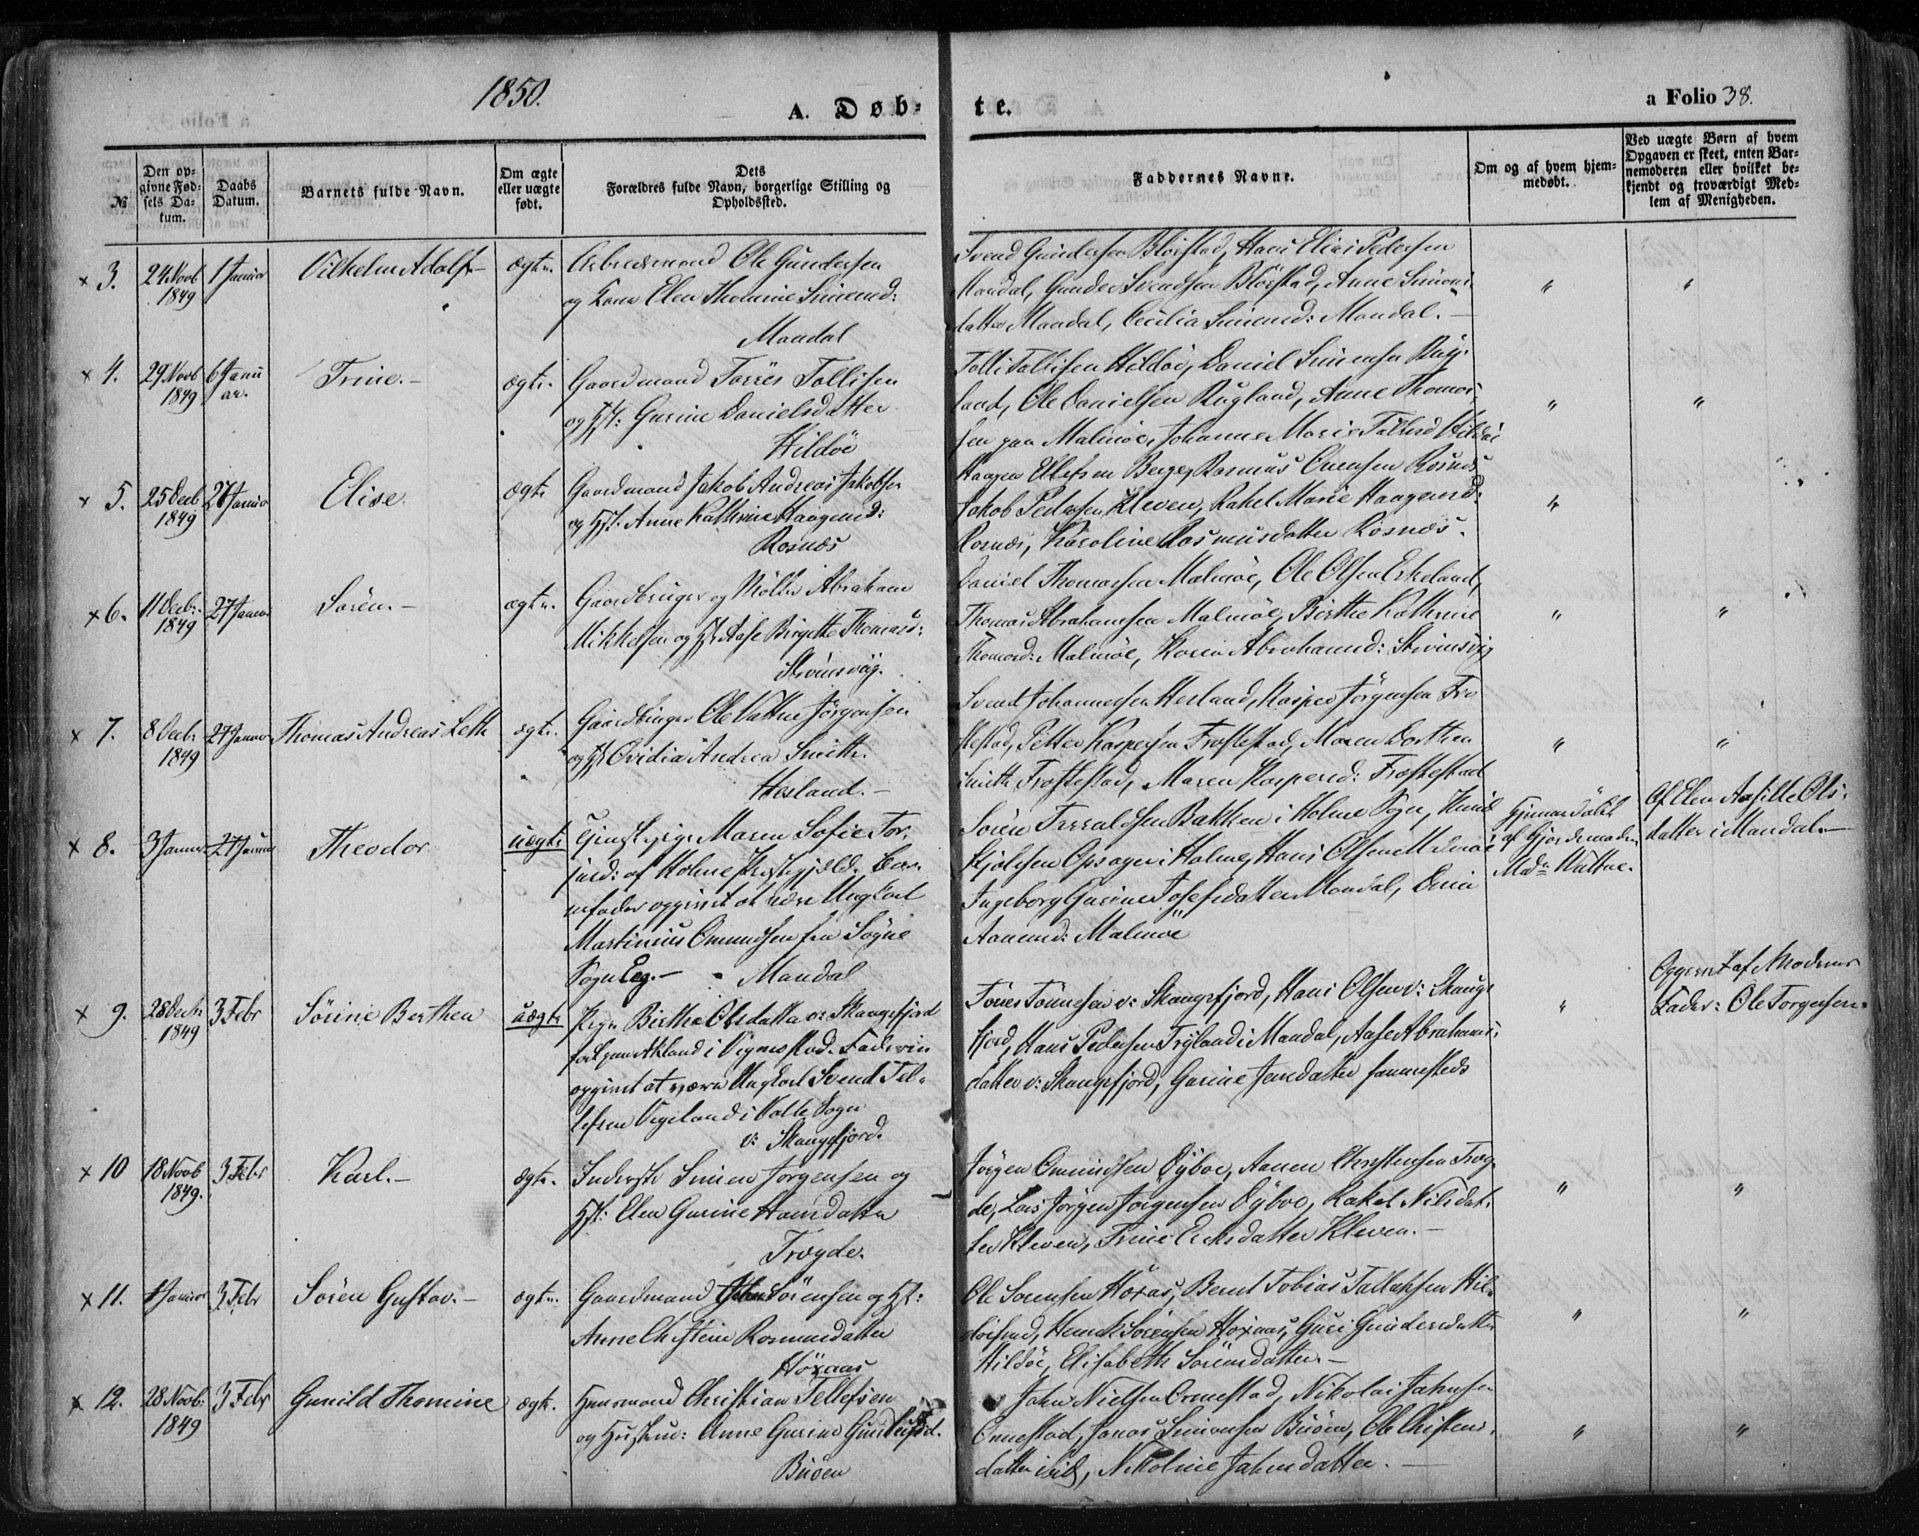 1850.
A. Døb-
te.
a Folio 38.
№
Den op-
givne Fød-
sels Da-
tum.
Daabs
Datum.
Barnets fulde Navn.
Om ægte
eller uægte
født.
Dets
Forældres fulde Navn, borgerlige Stilling og
Opholdssted.
Faddernes Navne.
Om og af hvem hjem-
medøbt.
Ved uægte Børn af hvem
Opgaven er skeet, enten Bar-
nemoderen eller hvilket be-
kjendt og troværdigt Med-
lem af Menigheden.
× 3.
24 Novb
1849
1 Januar
Vilhelm Adolf
ægte.
Arbeidsmand Ole Gundersen
og Kone Elen Thomine Simensd:
Mandal
Svend Gundersen Blørstad, Hans Elias Pedersen
Mandal, Gunder Svendsen Blørstad, Anne Simons-
datter Mandal, Cecilia Simensd: Mandal.
"
"
× 4.
29 Novb
1849
6 Janu
ar.
Trine.
ægte.
Gaardmand Torres Tollisen
og Hst: Gurine Danielsdatter
Hildøe
Tolli Tollisen Hildøe, Daniel Simensen Rug-
land, Ole Danielsen Rugland, Anne Thomas-
sen paa Malmøe, Johanne Marie
"
"
× 5.
25 Decb
1849
27 Januar
Elise.
ægte
Gaardmand Jakob Andreas Jakobsen
og Hst. Anne Kathrine Haagensd:
Rosnæs
Haagen Ellefsen Berge, Rasmus Evensen Rosnæs
Jakob Pedersen Kleven, Rakel Marie Haagensd:
Rosnæs, Karoline Rasmusdatter Rosnæs.
"
× 6.
11 Decb:
1849
27 Januar
Søren.
ægte.
Gaardbruger og Møller Abraham
Mikkelsen og Hst Aase Birgitte Thomasd:
Skrinsvig.
Daniel Thomassen Malmøe, Ole Olsen Eikeland,
Thomas Abrahamsen Malmøe, Birthe Kathrine
Thomasd: Malmøe, Karen Abrahamsd: Skrinsvig
"
"
× 7.
8 Decb:
1849
27 Januar
Thomas Andreas Leth
ægte.
Gaardbruger Ole Vattne Jørgensen
og Hst Ovidia Andrea Smith.
Hesland.
Svend Johannessen Hesland, Kasper Jørgensen Fro-
stestad, Petter Kaspersen Frostestad, Maren Dorthea
Smith Frostestad, Maren Kaspersd: Frostestad
"
"
× 8.
3 Januar
27 Januar
Theodor
uægte
Tjenestepige Maren Sofie Tor-
juld: af Holme Præstegjeld. Bar-
nefader opgivet at være Ungkarl
Martinius Omundsen fra Søgne
Sogn Eeg. Mandal
Søren Bakken i Holme Sogn, Knud
Opsager i Holme, Hans Olsen Malmøe
Ingeborg Gurine Josefsdatter Mandal,
Aanensd: Malmøe
Hjemmedøbt
af Gjordemoder
Md Wattne.
Af Elen Ols-
datter i Mandal.
× 9.
28 Decb:
1849
3 Febr
Sørine Berthea
uægte
Pigen Birthe Olsdatter v: Skangsfjord
i Vignestad. Faderen
opgivet at være Ungkarl Svend Tel-
lefsen Vigeland i Valle Sogn
v: Skangsfjord.
Tønnes Tønnesen v: Skangsfjord, Hans Olsen v: Skangs-
fjord, Hans Pedersen Tryland i Mandal, Aase Abrahams-
datter v: Skangsfjord, Gurine Jensdatter sammesteds
"
Opgivet af Moderens
Fader: Ole Torgersen.
× 10
18 Novb
1849.
3 Febr
Karl.
ægte.
Inderste Simen Jørgensen og
Hst: Elen Gurine Hansdatter
Trøyde.
Jørgen Omundsen Dybo, Aanen Christensen Trøy-
de, Jørgen Jørgensen Dybo, Rakel Nilsdat-
ter Kleven, Trine Eriksdatter Kleven.
"
"
× 11.
1 Januar
3 Febr
Søren Gustav.
ægte.
Gaardmand Sørensen og Hst:
Anne Christine Rasmusdatter
Høxaas
Ole Sørensen Høxaas, Bernt Tobias Tallaksen Hil-
døesund, Henrik Sørensen Høxaas, Guri Gundersdatter
Hildøe, Elisabeth Sørensdatter.
"
"
× 12.
28 Novb:
1849
3 Febr
Gunild Thomine
ægte.
Huusmand Christian Tellefsen
og Hustru: Anne Gurine
Buøen
Jahn Nielsen Ormestad, Nikolai Jahnsen
Ormestad, Jonas Simonsen Buøen, Ole Christens-
datter ibid, Nikoline Jahnsdatter.
"
"